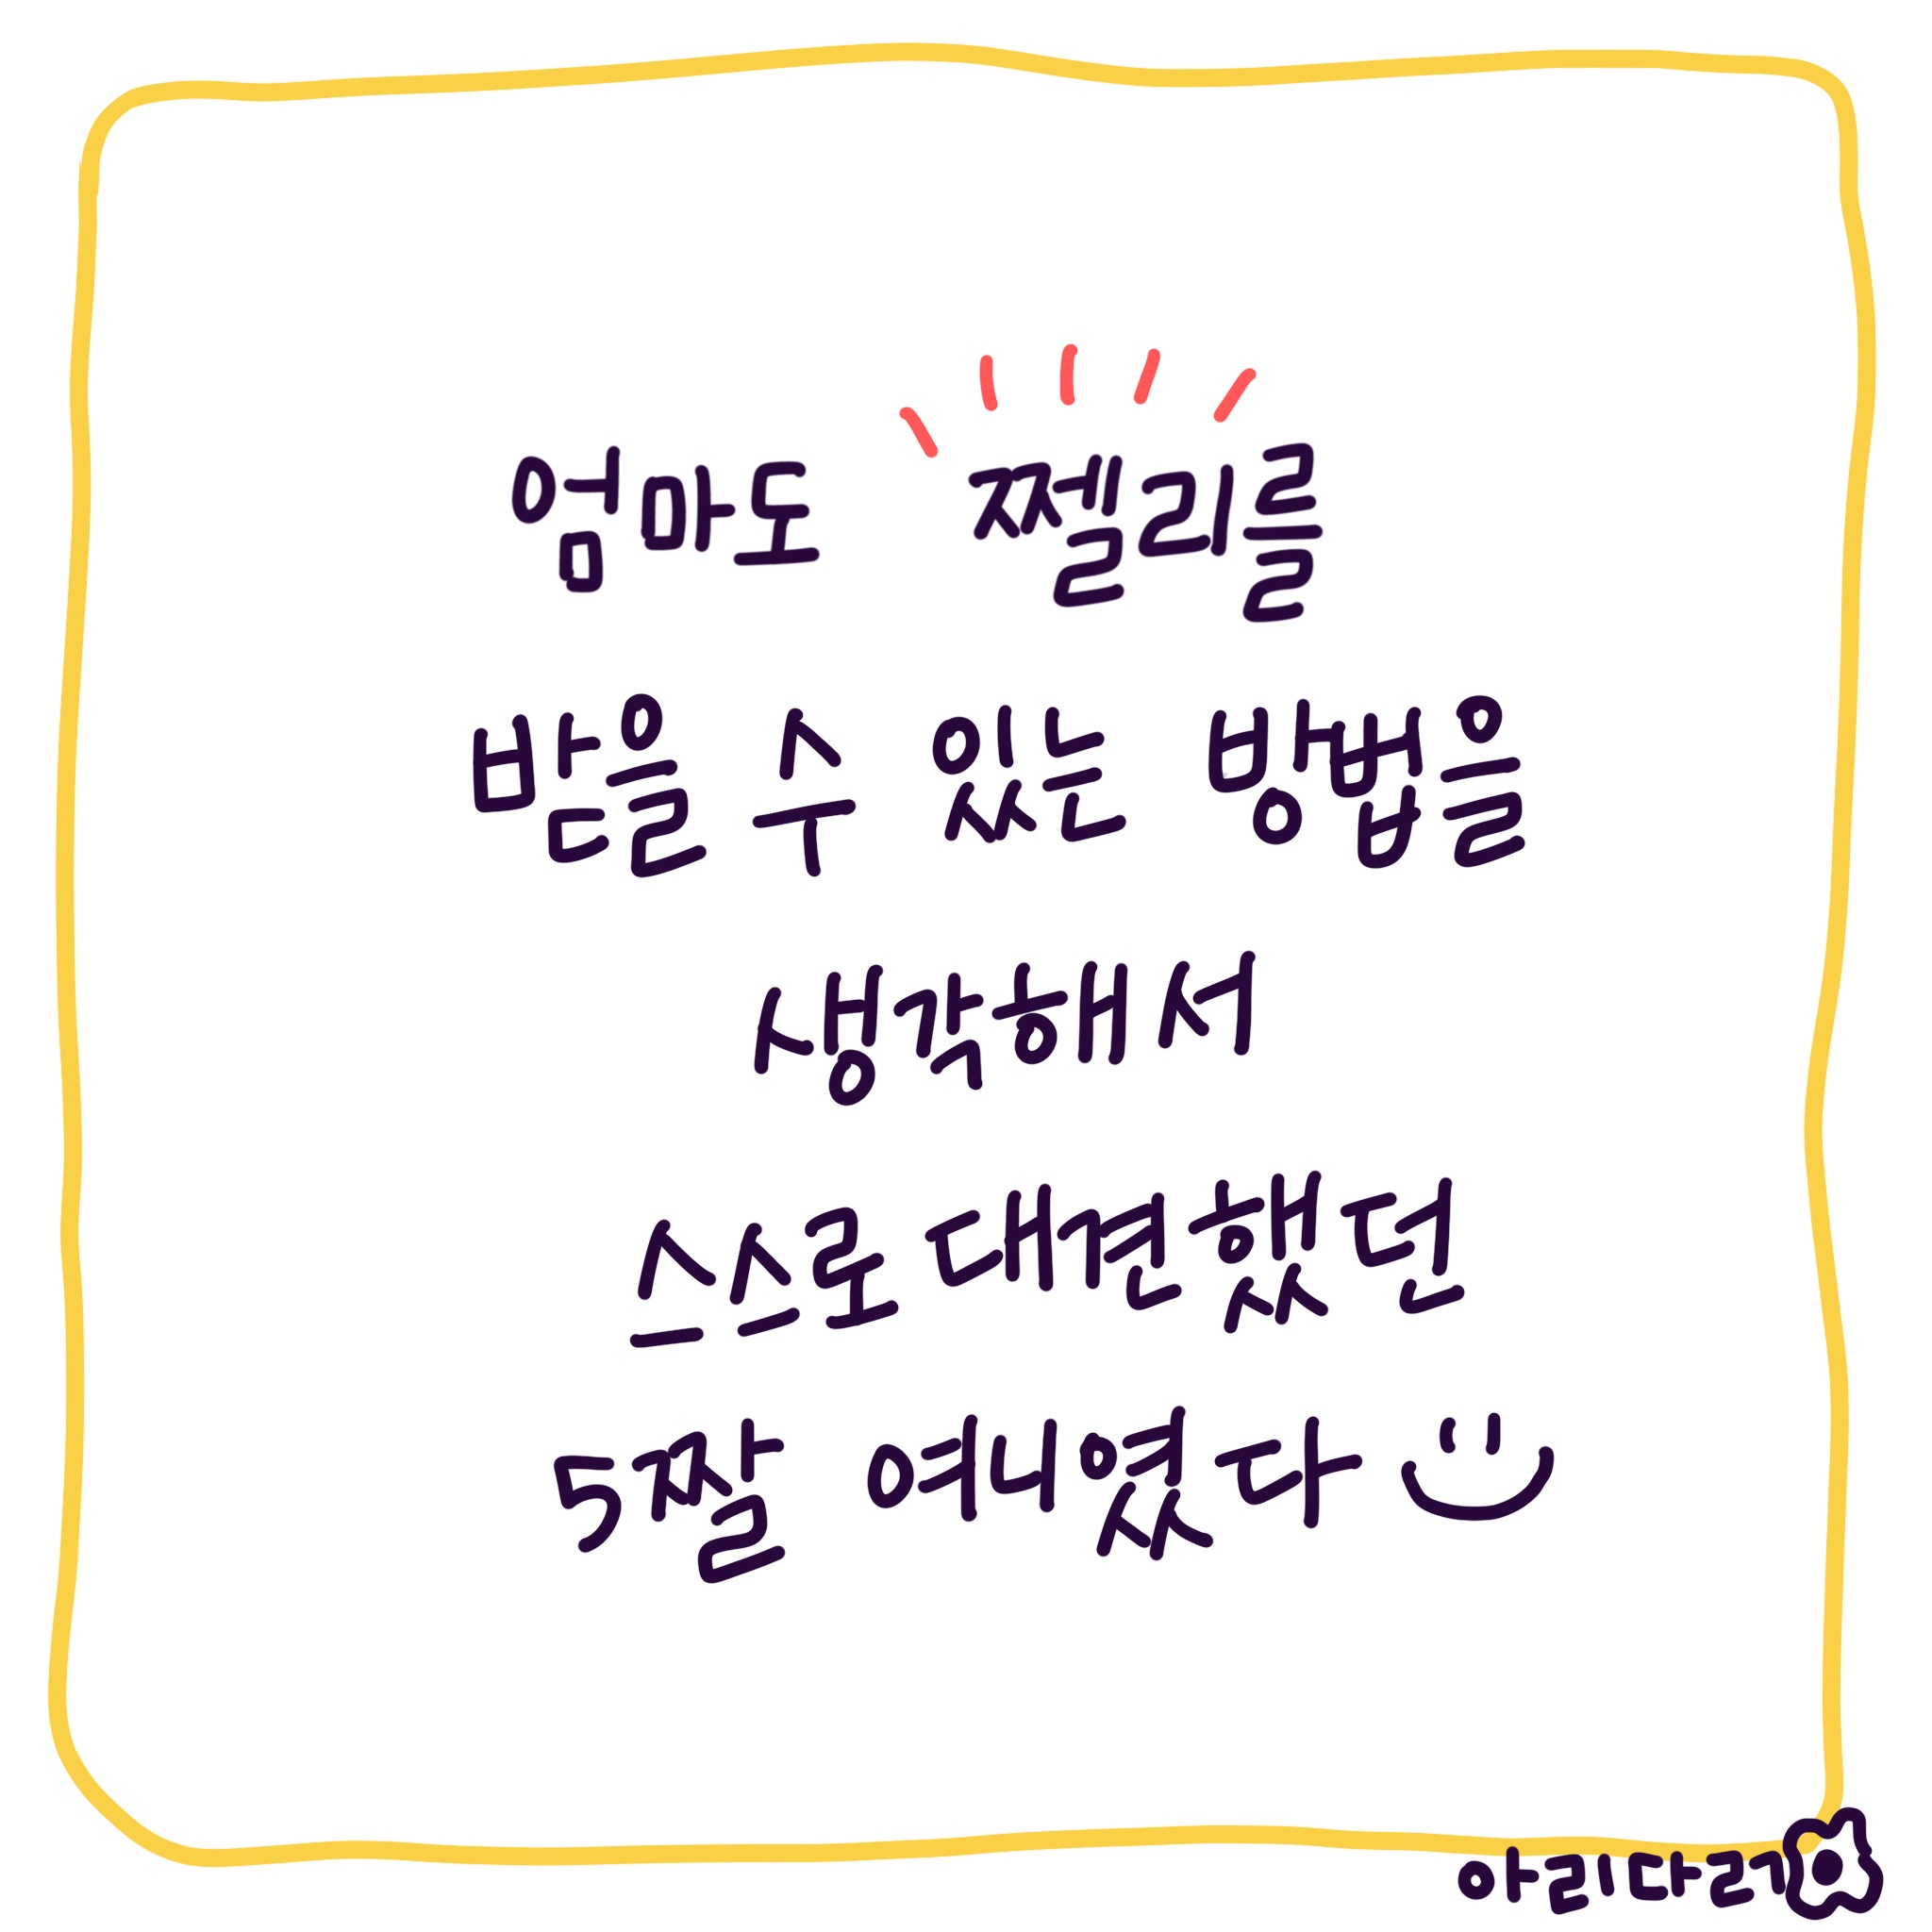 엄마도 쩰리를
받을 수 있는 방법을
생각해서
스스로 대견했던
5짤 여니였다
아리다리